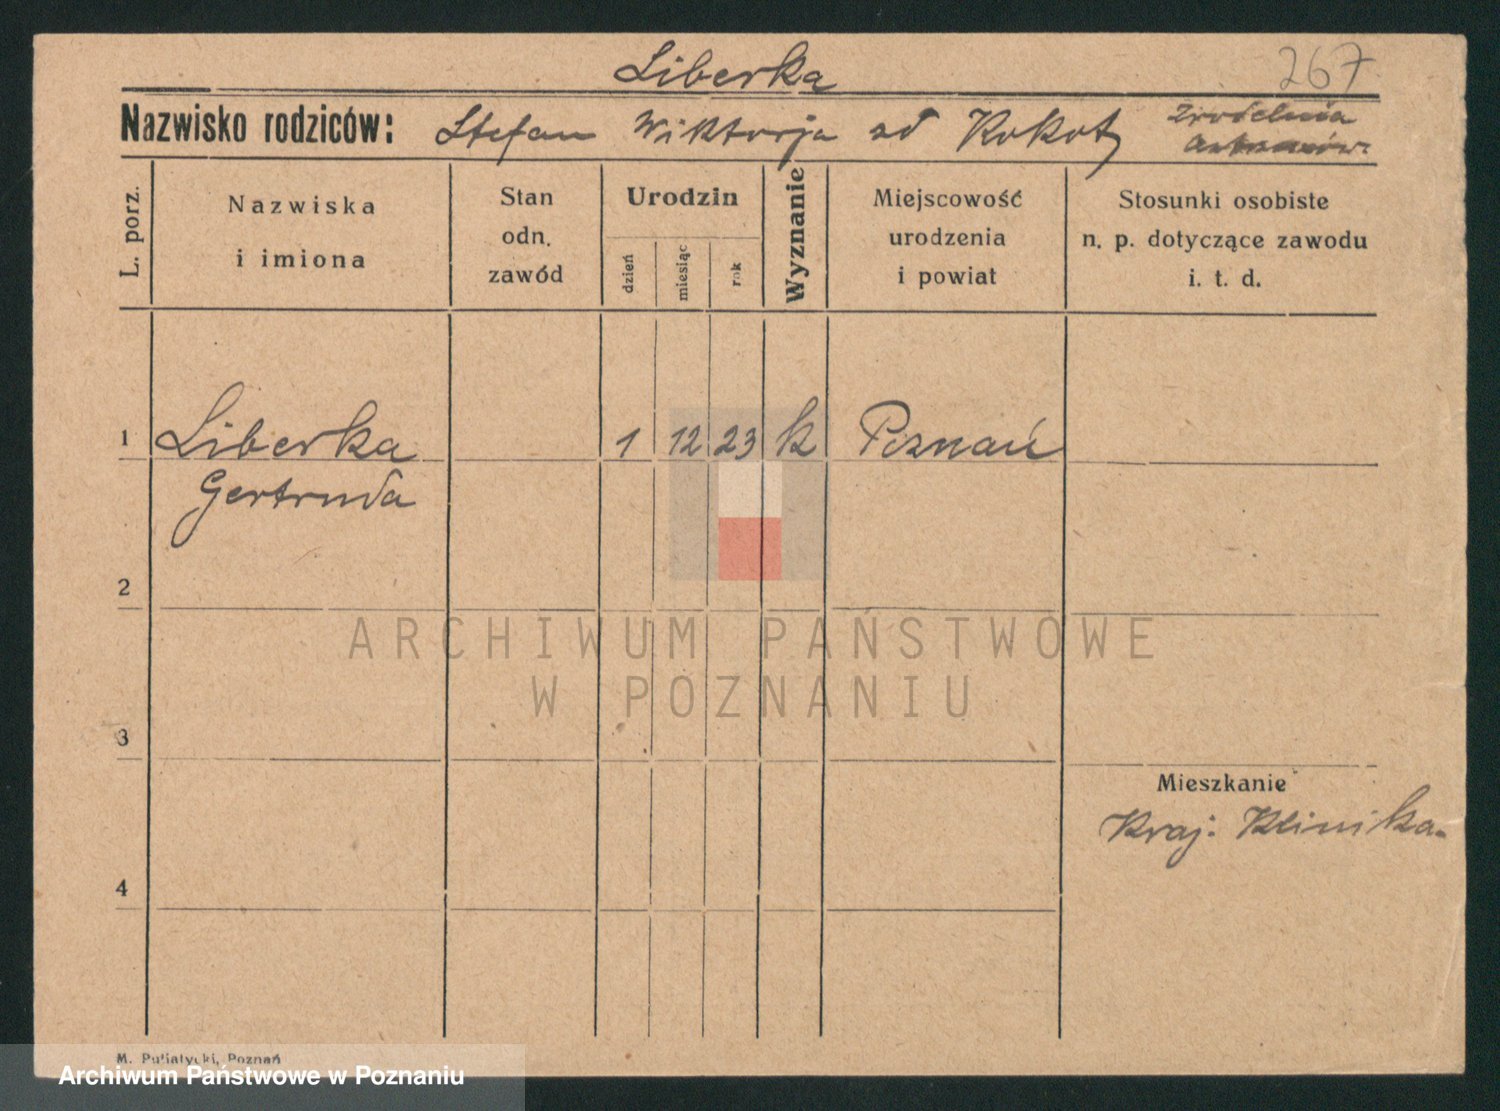 Liberka
267
Nazwisko rodziców: Stefan Wiktorja zd Kokot
L. porz.
Nazwiska
i imiona
Stan
odn.
zawód
Urodzin
dzień
miesiąc
rok
Wyznanie
Miejscowość
urodzenia
i powiat
Stosunki osobiste
n. p. dotyczące zawodu
i. t. d.
1 Liberka 1 12 23 k Poznań
Gertruda
2
ARCHIWUM PAŃSTWOWE
W POZNANIU
3
Mieszkanie
Kraj. Klinika
4
M. Putiatycki, Poznań
Archiwum Państwowe w Poznaniu